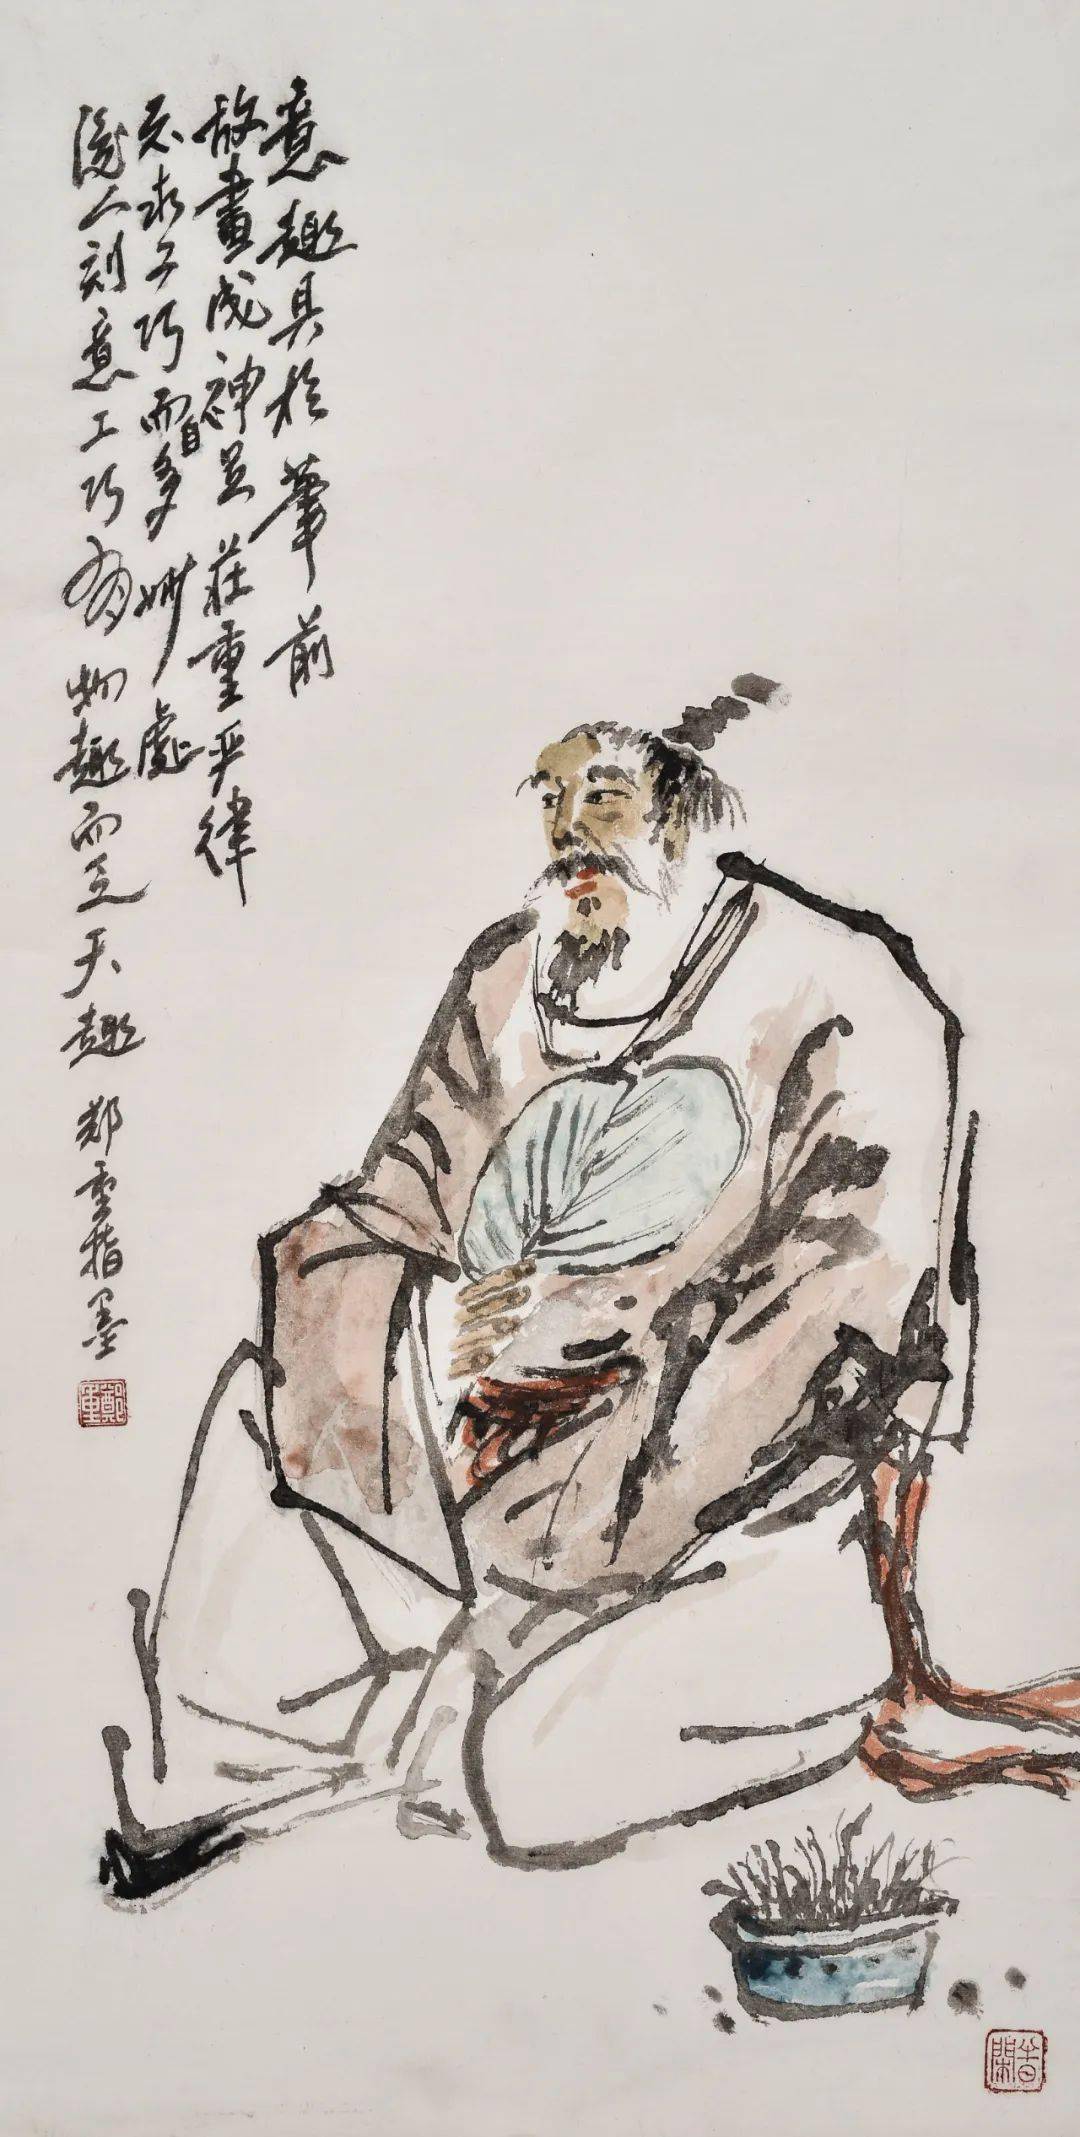 意趣具於筆前
故畫成神足莊重严律
不求工巧而自多妙處
後人刻意工巧有物趣而乏天趣 郑重指墨
鄭重